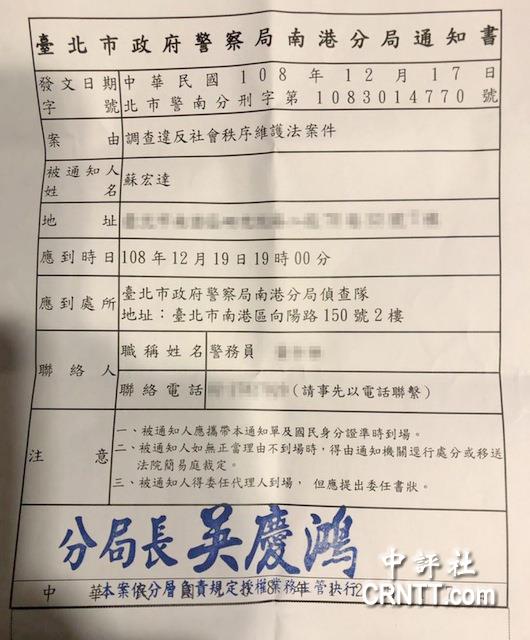 臺北市政府警察局南港分局通知書
發文日期 中華民國108年12月17日
字號 北市警南分刑字第1083014770號
案由 調查違反社會秩序維護法案件
被通知人姓名 蘇宏達
地址
應到時日 108年12月19日19時00分
應到處所 臺北市政府警察局南港分局偵查隊
地址：臺北市南港區向陽路150號2樓
聯絡人 職稱姓名 警務員
聯絡電話 (請事先以電話聯繫)
注意 一、被通知人應攜帶本通知單及國民身分證準時到場。
二、被通知人如無正當理由不到場時，得由通知機關逕行處分或移送
法院簡易庭裁定。
三、被通知人得委任代理人到場，但應提出委任書狀。
分局長 吳慶鴻
本案依分層負責規定授權業務主管執行
中評社
CRNTT.com